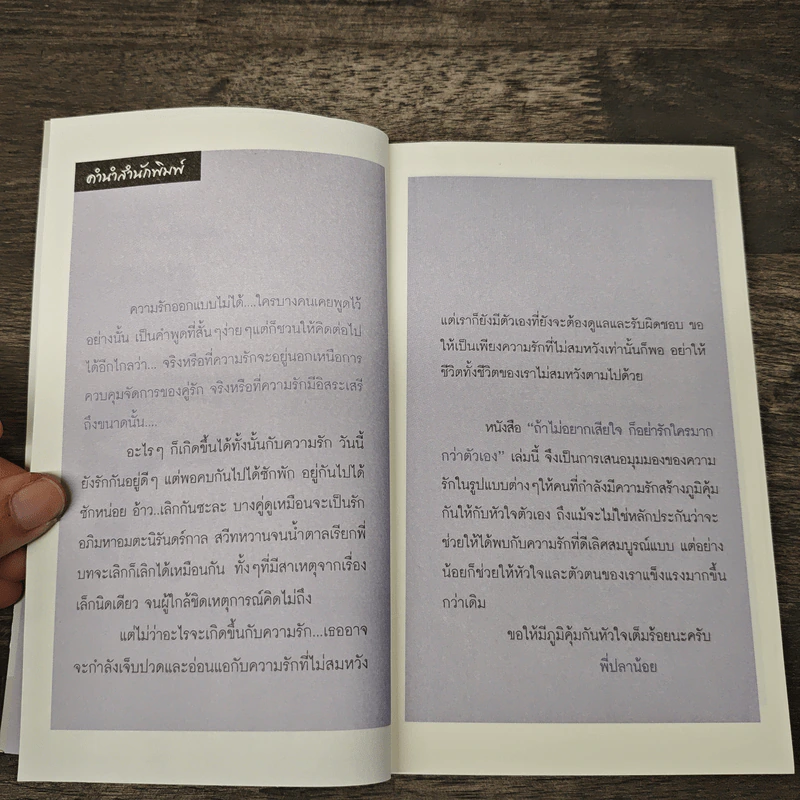 คำนำสำนักพิมพ์
ความรักออกแบบไม่ได้....ใครบางคนเคยพูดไว้
อย่างนั้น เป็นคำพูดที่สั้นๆง่ายๆแต่ก็ชวนให้คิดต่อไป
ได้อีกไกลว่า... จริงหรือที่ความรักจะอยู่นอกเหนือการ
ควบคุมจัดการของคู่รัก จริงหรือที่ความรักมีอิสระเสรี
ถึงขนาดนั้น....
อะไรๆ ก็เกิดขึ้นได้ทั้งนั้นกับความรัก วันนี้
ยังรักกันอยู่ดีๆ แต่พอคบกันไปได้ซักพัก อยู่กันไปได้
ซักหน่อย อ้าว..เลิกกันซะละ บางคู่ดูเหมือนจะเป็นรัก
อภิมหาอมตะนิรันดร์กาล สวีทหวานจนน้ำตาลเรียกพี่
บทจะเลิกก็เลิกได้เหมือนกัน ทั้งๆที่มีสาเหตุจากเรื่อง
เล็กนิดเดียว จนผู้ใกล้ชิดเหตุการณ์คิดไม่ถึง
แต่ไม่ว่าอะไรจะเกิดขึ้นกับความรัก...เธออาจ
จะกำลังเจ็บปวดและอ่อนแอกับความรักที่ไม่สมหวัง
แต่เราก็ยังมีตัวเองที่ยังจะต้องดูแลและรับผิดชอบ ขอ
ให้เป็นเพียงความรักที่ไม่สมหวังเท่านั้นก็พอ อย่าให้
ชีวิตทั้งชีวิตของเราไม่สมหวังตามไปด้วย
หนังสือ "ถ้าไม่อยากเสียใจ ก็อย่ารักใครมาก
กว่าตัวเอง" เล่มนี้ จึงเป็นการเสนอมุมมองของความ
รักในรูปแบบต่างๆให้คนที่กำลังมีความรักสร้างภูมิคุ้ม
กันให้กับหัวใจตัวเอง ถึงแม้จะไม่ใช่หลักประกันว่าจะ
ช่วยให้ได้พบกับความรักที่ดีเลิศสมบูรณ์แบบ แต่อย่าง
น้อยก็ช่วยให้หัวใจและตัวตนของเราแข็งแรงมากขึ้น
กว่าเดิม
ขอให้มีภูมิคุ้มกันหัวใจเต็มร้อยนะครับ
พี่ปลาน้อย